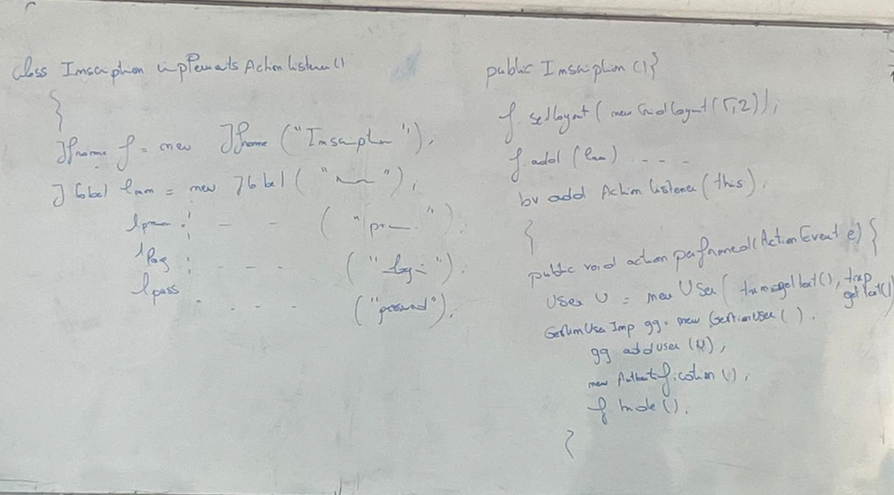 class Inscription implements ActionListener ()
{
JFrame f = new JFrame ("Inscription");
JLabel lnom = new JLabel ("nom");
lpren : - - ("pren");
llog : - - - ("login");
lpass . . . . ("password");
public Inscription () {
f. setLayout (new GridLayout (5,2));
f. add (lnom) - - - -
bv add Action Listener (this);
}
public void action performed (ActionEvent e) {
User U = new User ( getText(),
getText()
GestionUser Imp gg = new GestionUser ( ).
gg add User (U);
new Authentification ();
f hide ();
}